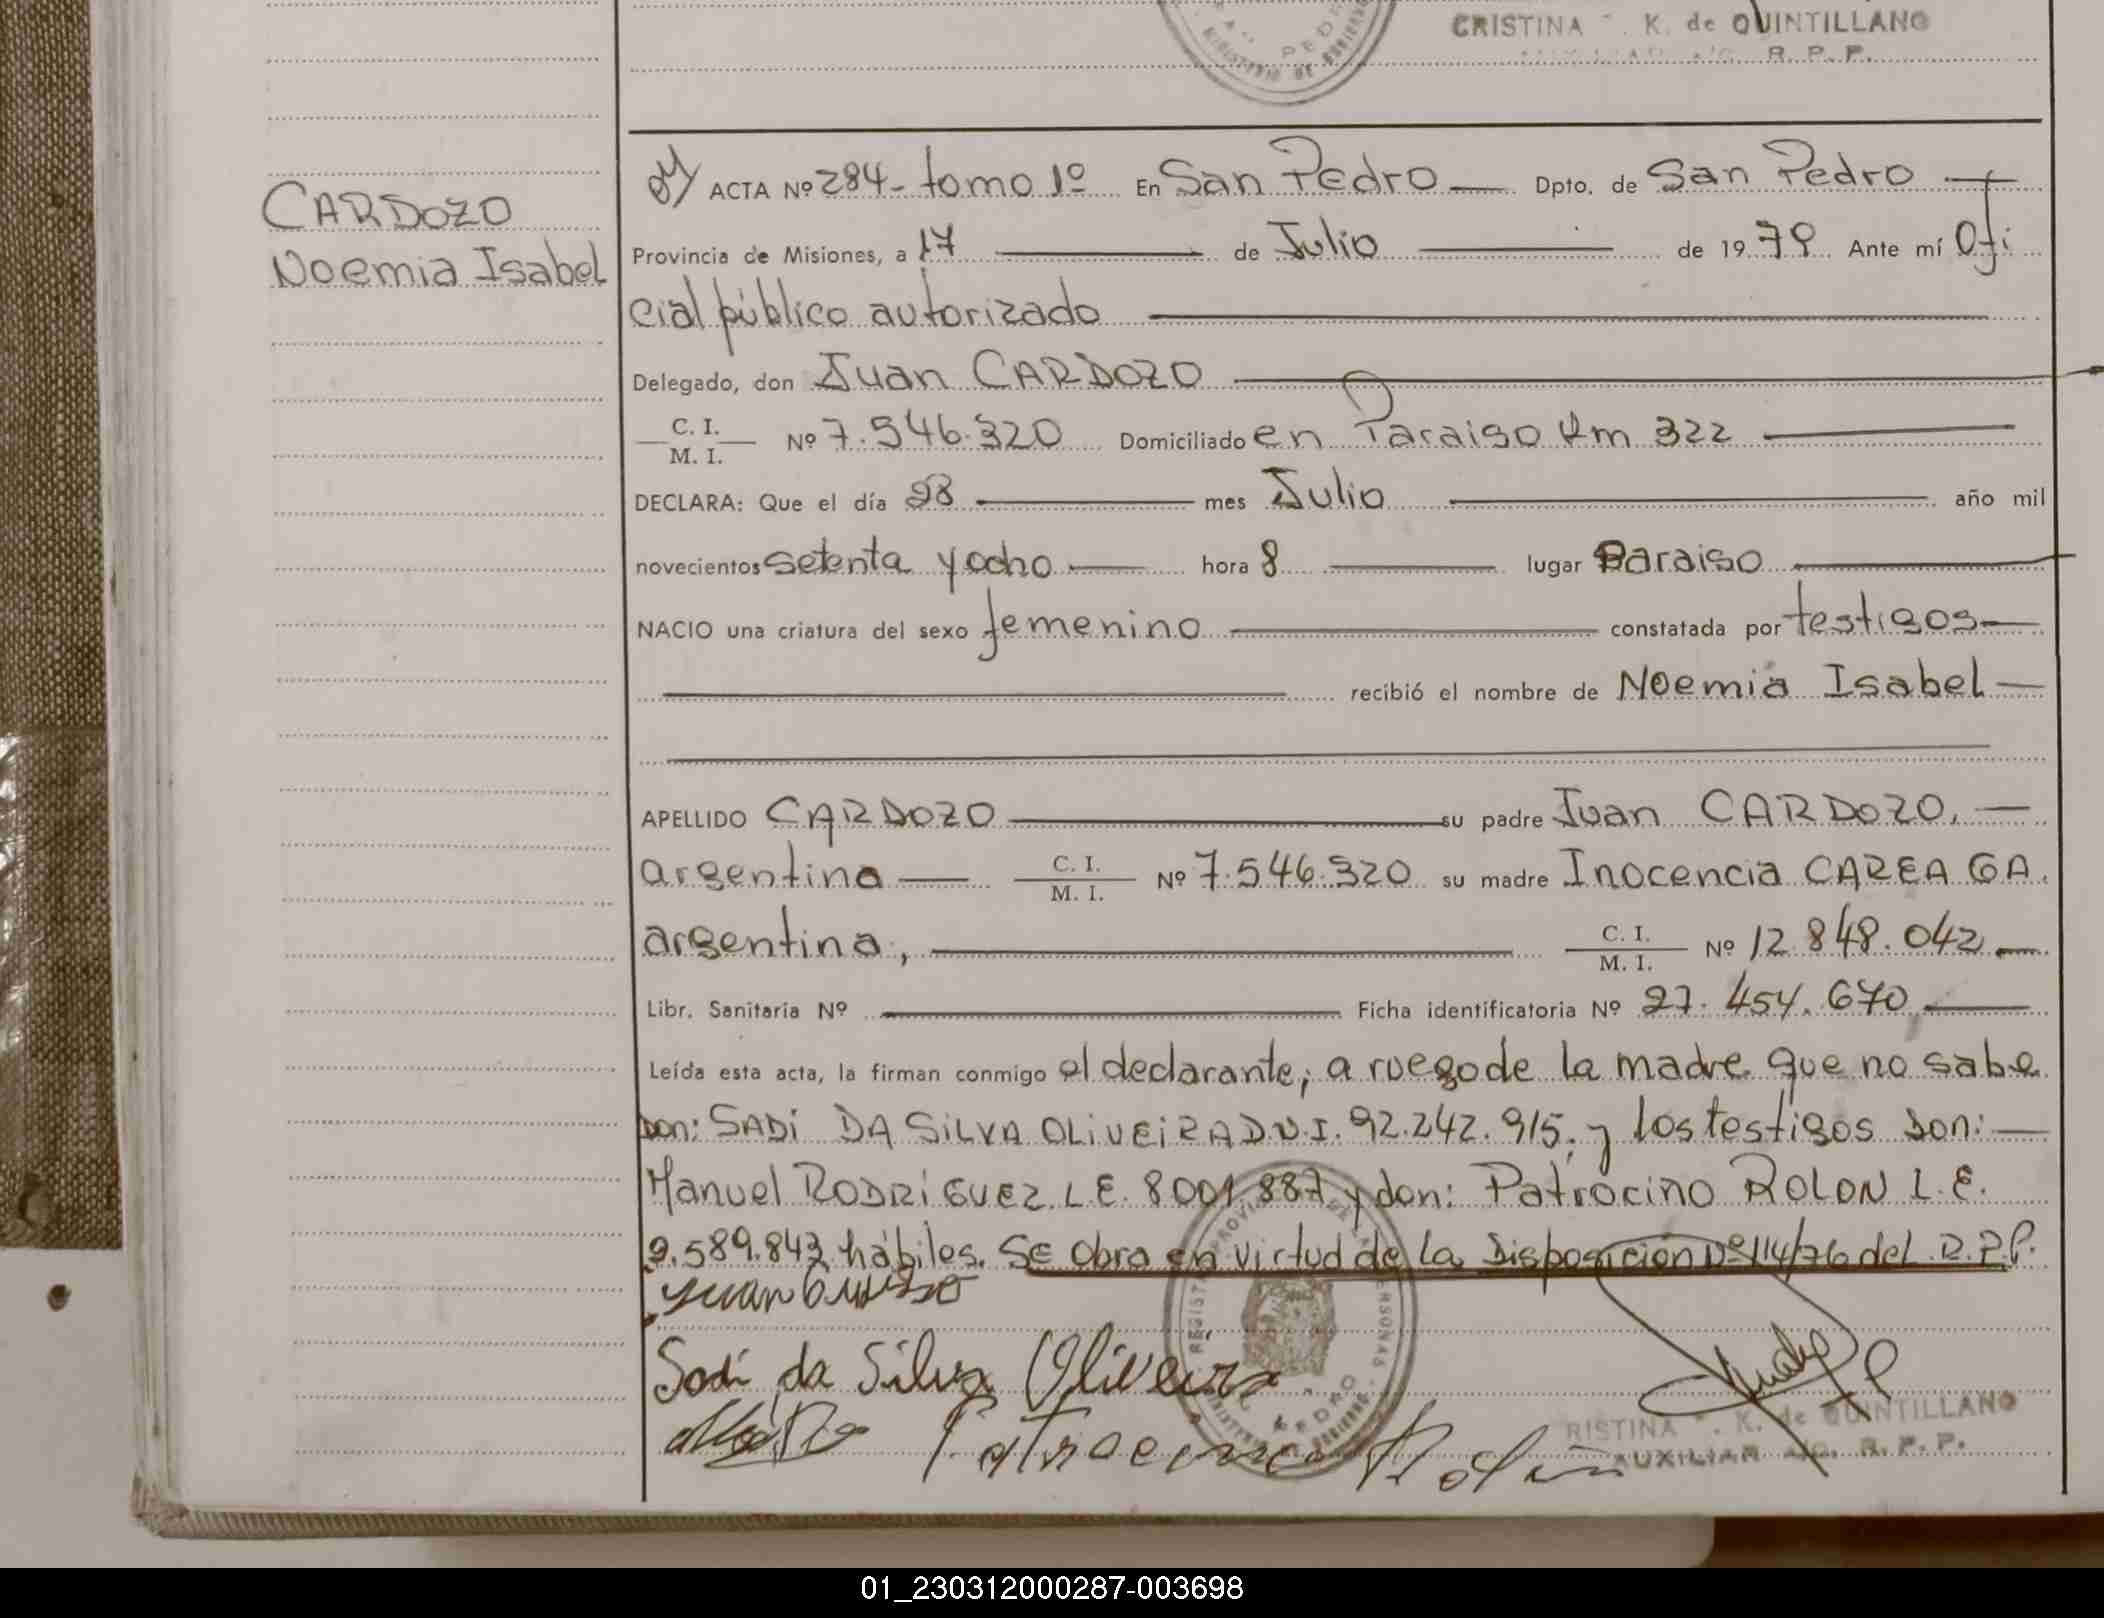 CRISTINA K. de QUINTILLANO
R. P. P.
ACTA Nº 284- tomo 1º En San Pedro Dpto. de San Pedro
CARDOZO
Noemia Isabel
Provincia de Misiones, a 17 de Julio de 1979 Ante mí Ofi
cial público autorizado
Delegado, don Juan CARDOZO
C. I.
M. I. Nº 7.546.320 Domiciliado en Paraiso Km 322
DECLARA: Que el día 28 mes Julio año mil
novecientos setenta y ocho hora 8 lugar Paraiso
NACIO una criatura del sexo femenino constatada por testigos
recibió el nombre de Noemia Isabel
APELLIDO CARDOZO su padre Juan CARDOZO,
argentino C. I.
M. I. Nº 7.546.320 su madre Inocencia
argentina, C. I.
M. I. Nº 12.848.042
Libr. Sanitaria Nº Ficha identificatoria Nº 27.454.670
Leída esta acta, la firman conmigo el declarante; a ruego de la madre que no sabe
Don: SADi DA SiLVA OLiVEiRA D.N.I. 92.242.915. y los testigos Don:
Manuel RODRiGUEZ L.E. 8001887 y don: Patrocino ROLON L.E.
9.589.843 hábiles. Se Obra en virtud de la Disposición Nº 114/76 del R.P.P.
Sadi da Silva Oliveira
Patrocinio Rolon
RISTINA K. de QUINTILLANO
AUXILIAR A/C. R. P. P.
01_230312000287-003698